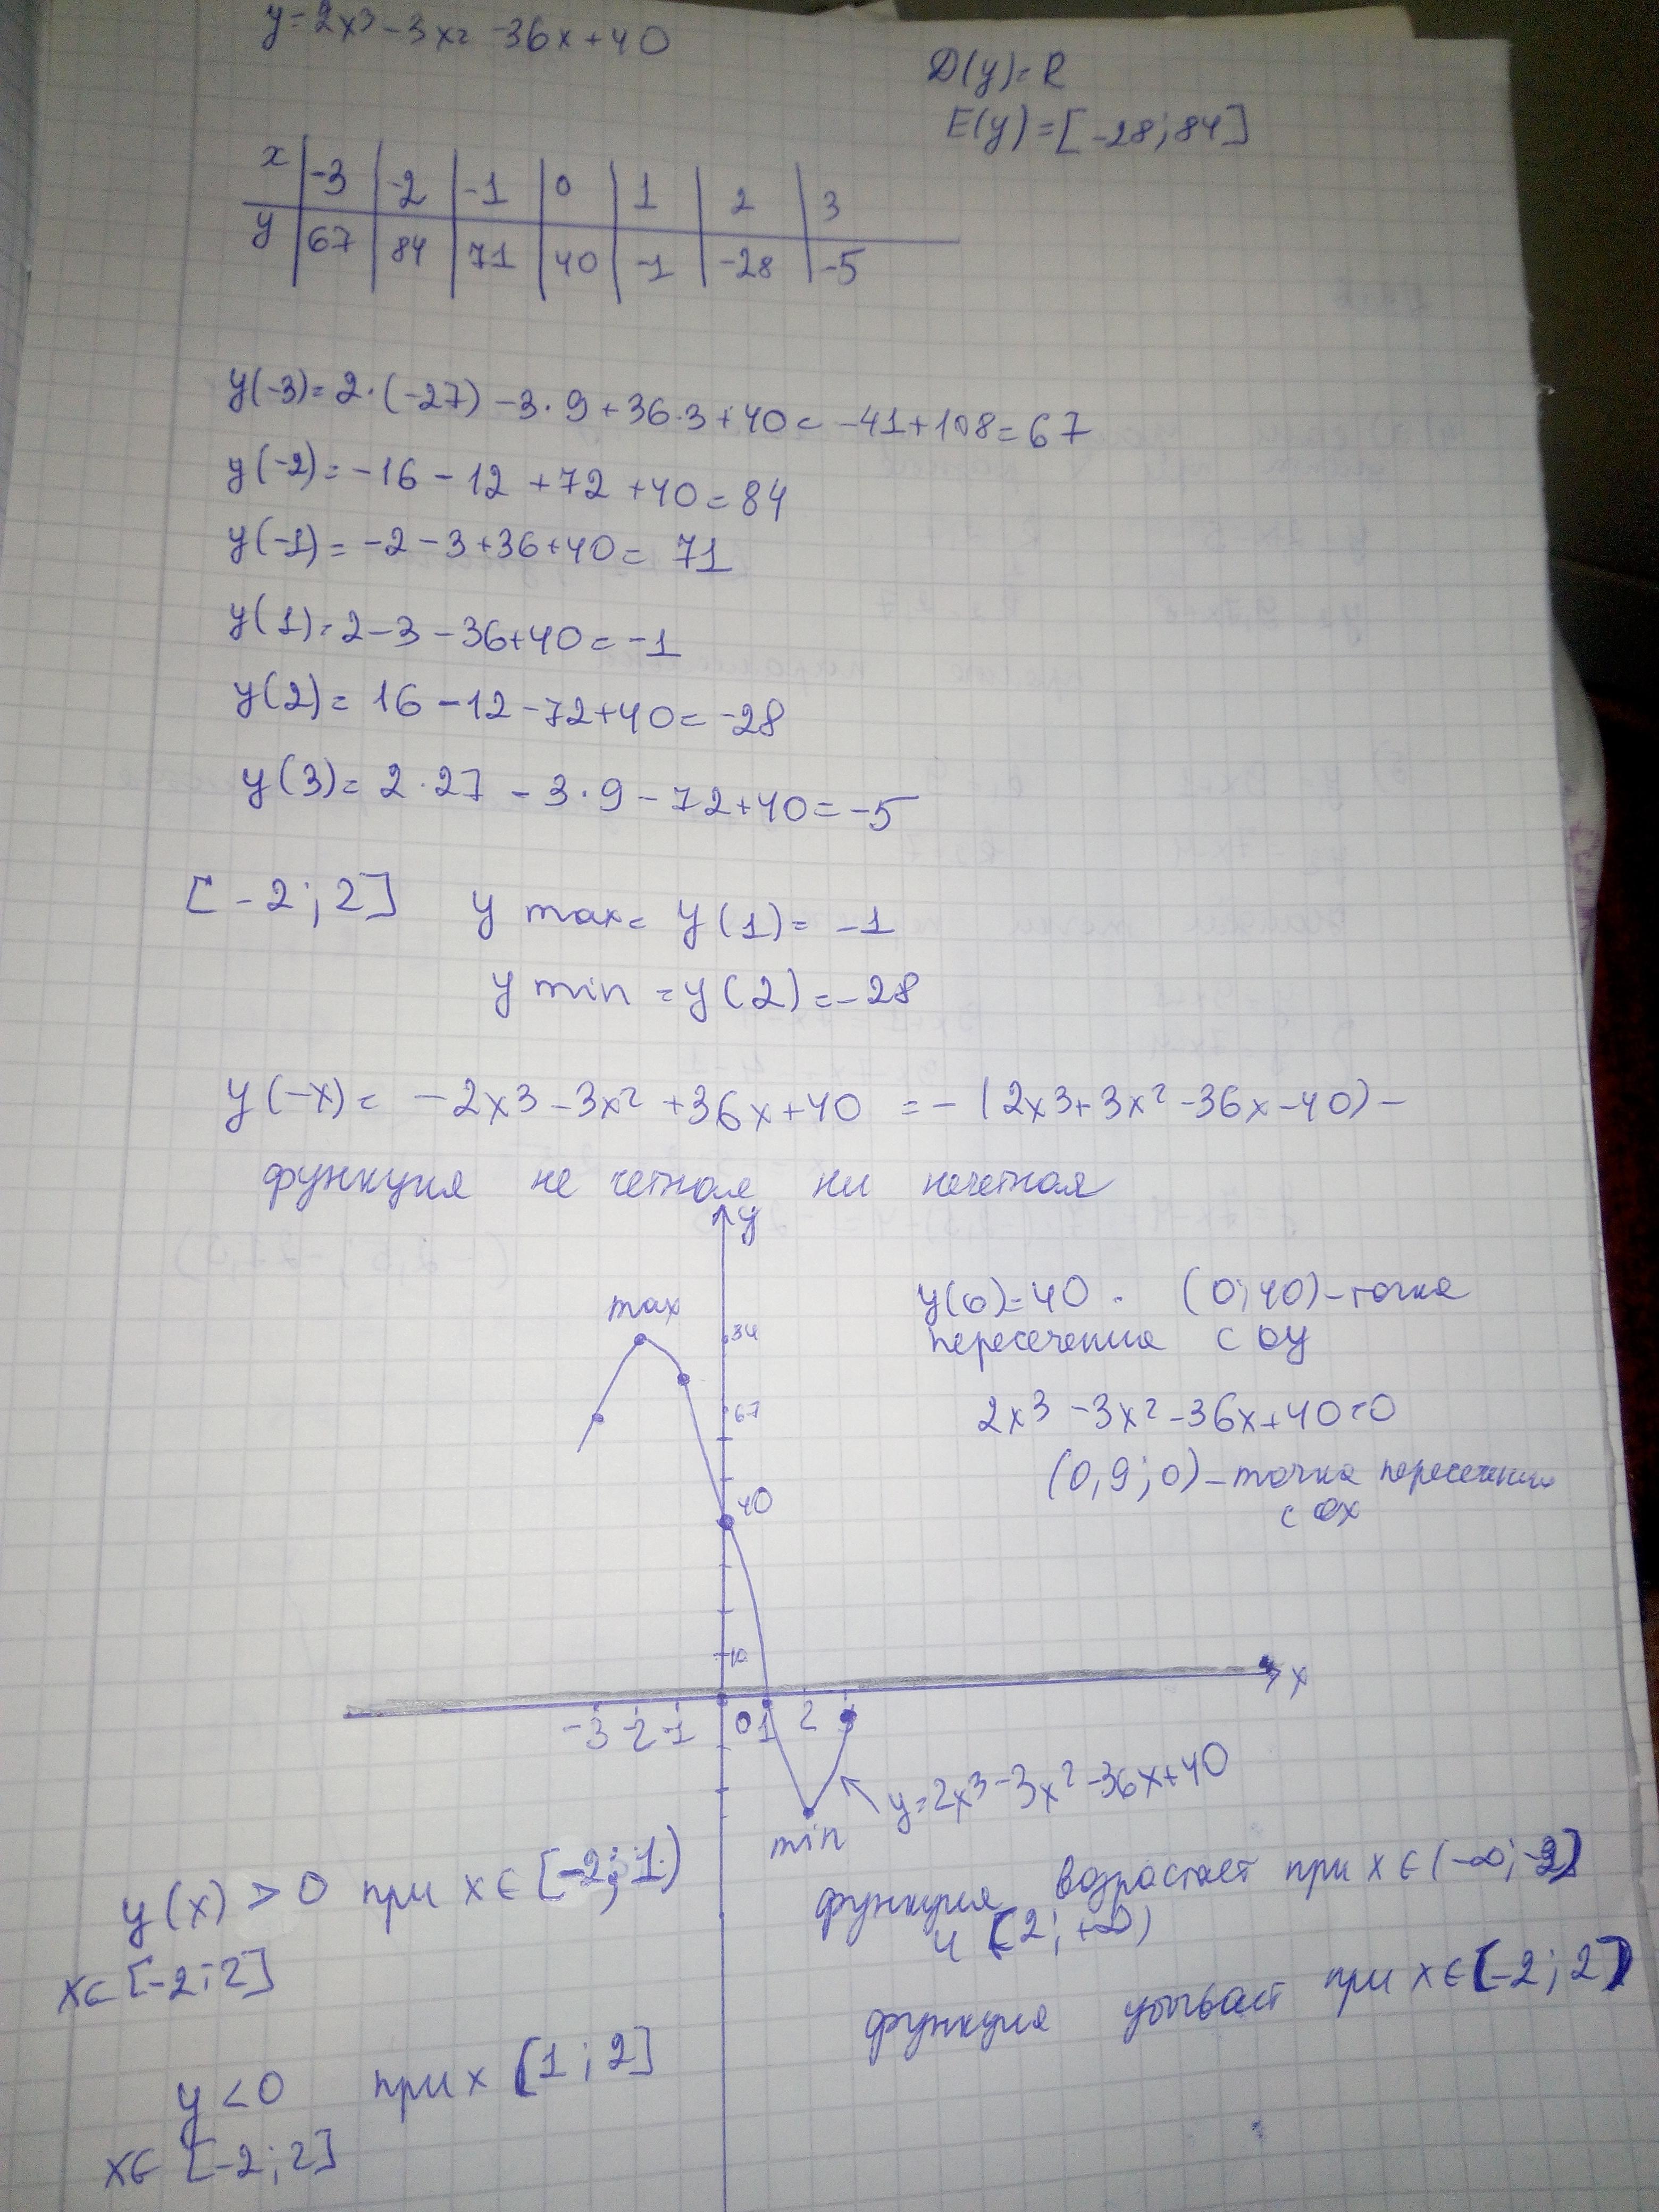 y=2x3-3x2-36x+40
D(y)=R
E(y)=[-28;84]
x -3 -2 -1 0 1 2 3
y 67 84 71 40 -1 -28 -5
y(-3)=2·(-27)-3·9+36·3+40=-41+108=67
y(-2)=-16-12+72+40=84
y(-1)=-2-3+36+40=71
y(1)=2-3-36+40=-1
y(2)=16-12-72+40=-28
y(3)=2·27-3·9-72+40=-5
[-2;2] y max= y(1)= -1
y min =y(2)=-28
y(-x)= -2x3-3x²+36x+40 =-(2x3+3x²-36x-40)-
функция не четная ни нечетная
y
max
84
67
40
10
-3 -2 -1 0 1 2 3
x
min
y=2x3-3x²-36x+40
y(0)=40 - (0;40)-точка
пересечения с оу
2x3-3x²-36x+40=0
(0,9;0)-точка пересечения
с ох
y(x)>0 при x∈[-2;1)
x∈[-2;2]
y<0 при x(1;2]
x∈[-2;2]
функция возрастает при x∈(-∞;-2]
и [2;+∞)
функция убывает при x∈[-2;2]